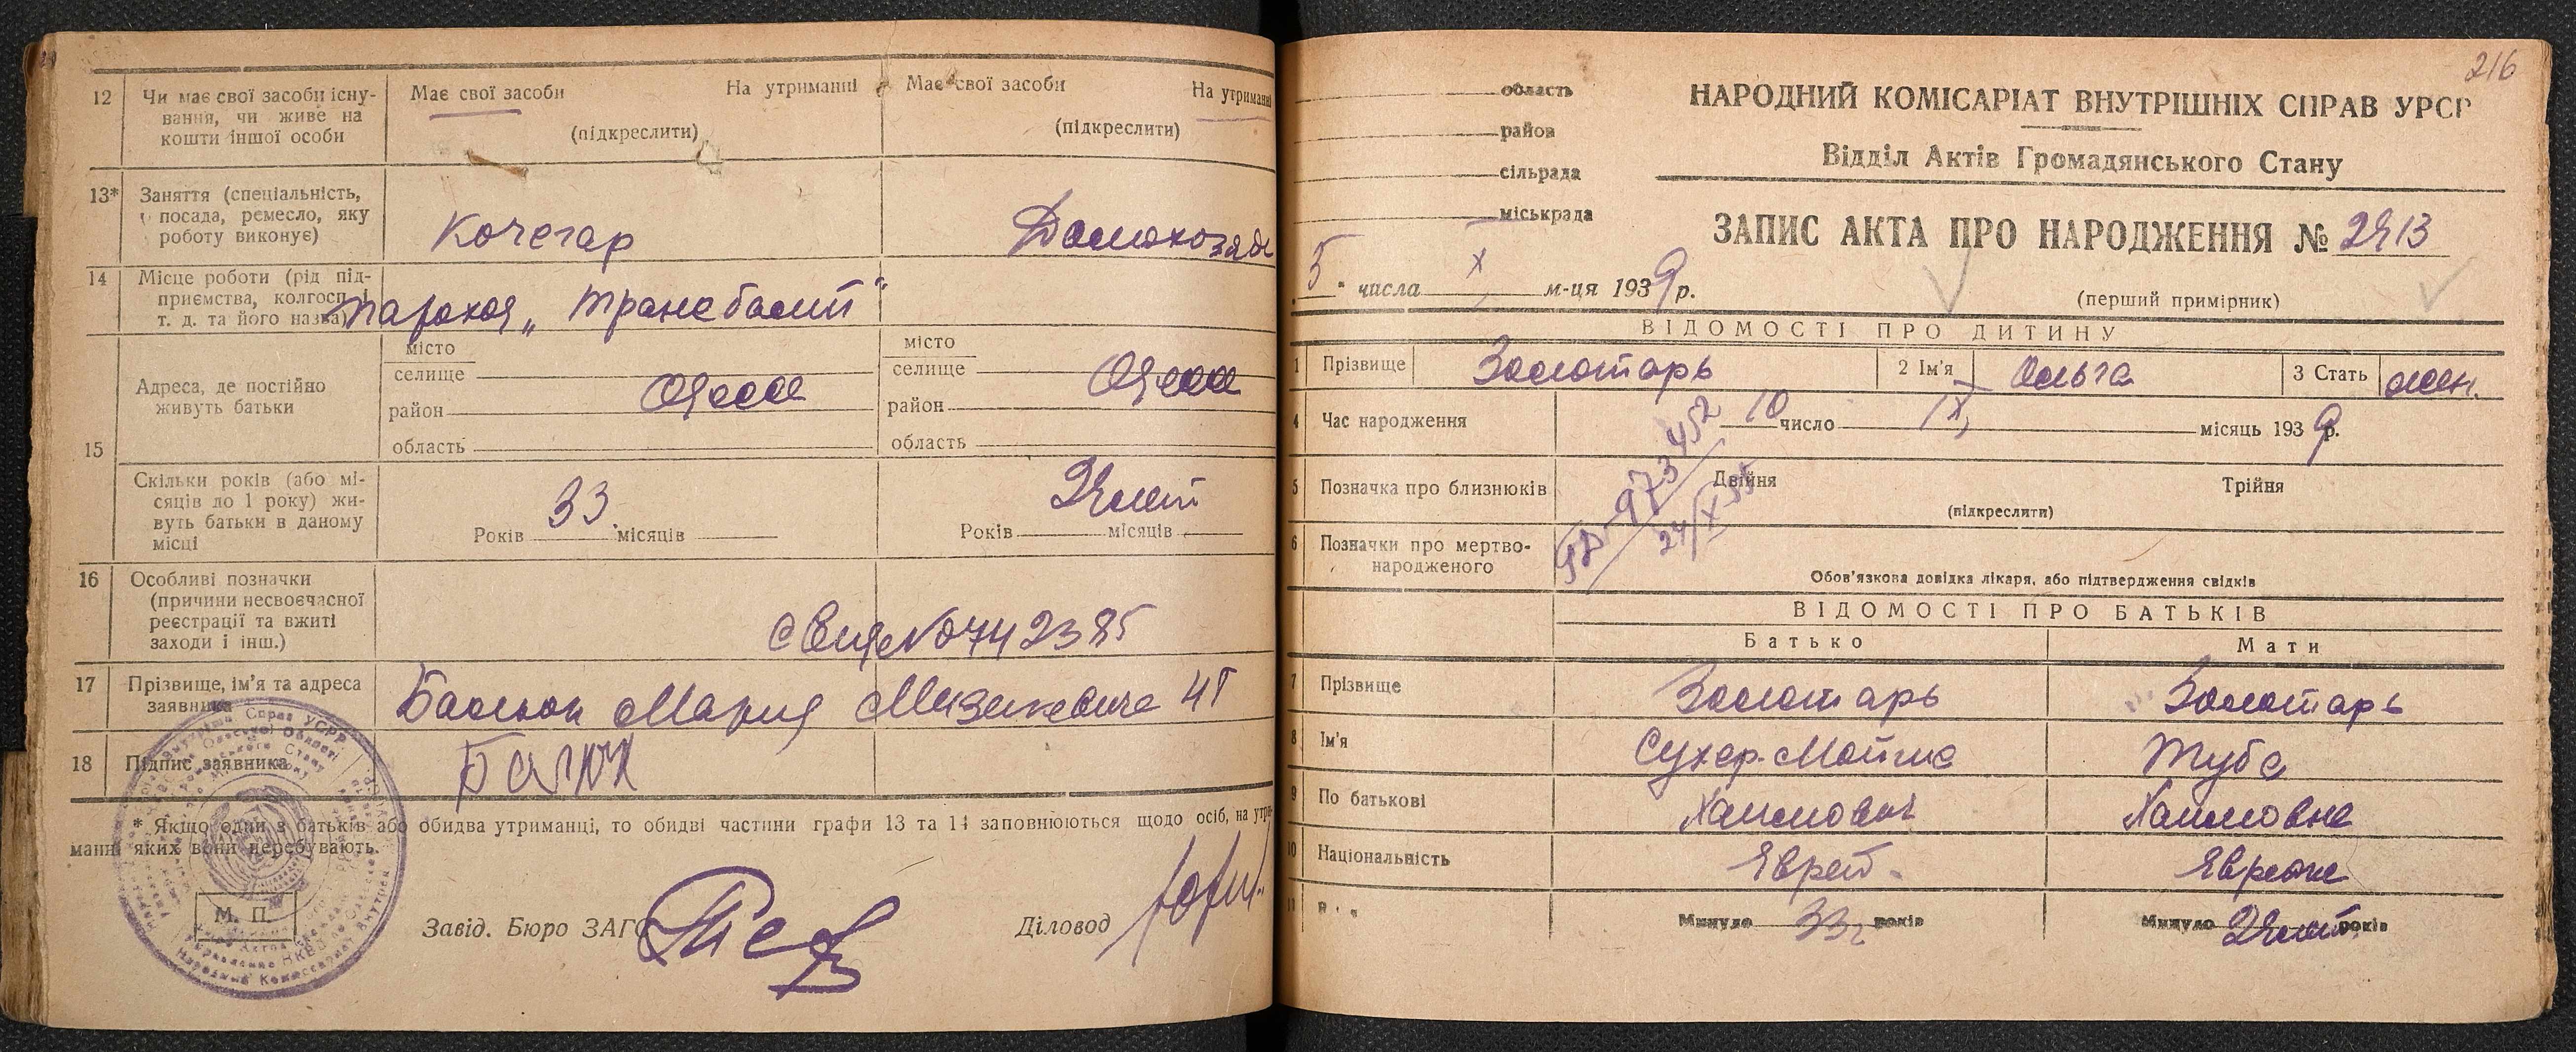 12 Чи має свої засоби існу-
вання, чи живе на
кошти іншої особи
Має свої засоби На утриманні
(підкреслити)
Має свої засоби На утриманні
(підкреслити)
13* Заняття (спеціальність,
посада, ремесло, яку
роботу виконує)
Кочегар
Домохозяй
14 Місце роботи (рід під-
приємства, колгосп і
т. д. та його назва)
пароход „Трансбалт"
15
Адреса, де постійно
живуть батьки
місто
селище
район
область
Одесса
місто
селище
район
область
Одесса
Скільки років (або мі-
сяців до 1 року) жи-
вуть батьки в даному
місці
Років 33 місяців
Років місяців
16 Особливі позначки
(причини несвоєчасної
реєстрації та вжиті
заходи і інш.)
17 Прізвище, ім'я та адреса
заявника
Мария
18 Підпис заявника
* Якщо один з батьків або обидва утриманці, то обидві частини графи 13 та 14 заповнюються щодо осіб, на утри-
манні яких вони перебувають.
М. П.
Завід. Бюро ЗАГС
Діловод
216
область
район
сільрада
міськрада
„5" числа X м-ця 1939 р.
НАРОДНИЙ КОМІСАРІАТ ВНУТРІШНІХ СПРАВ УРСР
Відділ Актів Громадянського Стану
ЗАПИС АКТА ПРО НАРОДЖЕННЯ № 2413
(перший примірник)
ВІДОМОСТІ ПРО ДИТИНУ
1 Прізвище Золотарь 2 Ім'я Ольга 3 Стать жен.
4 Час народження 10 число IX місяць 1939 р.
5 Позначка про близнюків Двійня Трійня
(підкреслити)
6 Позначки про мертво-
народженого
Обов'язкова довідка лікаря, або підтвердження свідків
24/X-55
ВІДОМОСТІ ПРО БАТЬКІВ
Батько Мати
7 Прізвище Золотарь Золотарь
8 Ім'я Сухер-Мойше Туба
9 По батькові Хаимович Хаимовна
10 Національність Еврей Еврейка
11 Минуло 33 г років Минуло років